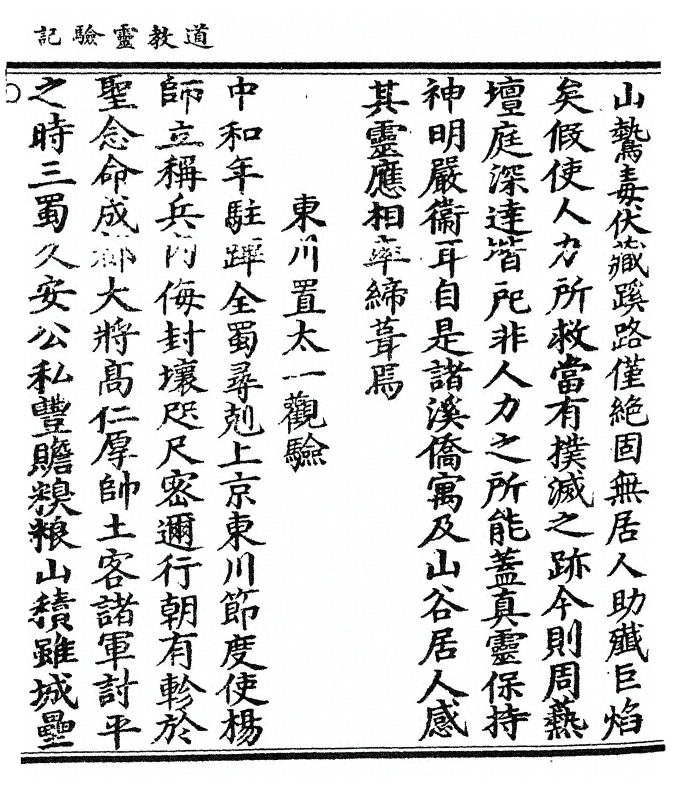 道教靈驗記
山鷙毒伏藏蹊路僅絕固無居人助殱巨焰
矣假使人力所救當有撲滅之跡今則周爇
壇庭深達堦戺非人力之所能蓋真靈保持
神明嚴衞耳自是諸溪僑寓及山谷居人感
其靈應相率締葺焉
東川置太一觀驗
中和年駐蹕全蜀尋剋上京東川節度使楊
師立稱兵內侮封壤咫尺密邇行朝有軫於
聖念命成都大將高仁厚帥土客諸軍討平
之時三蜀久安公私豐贍糗粮山積雖城壘